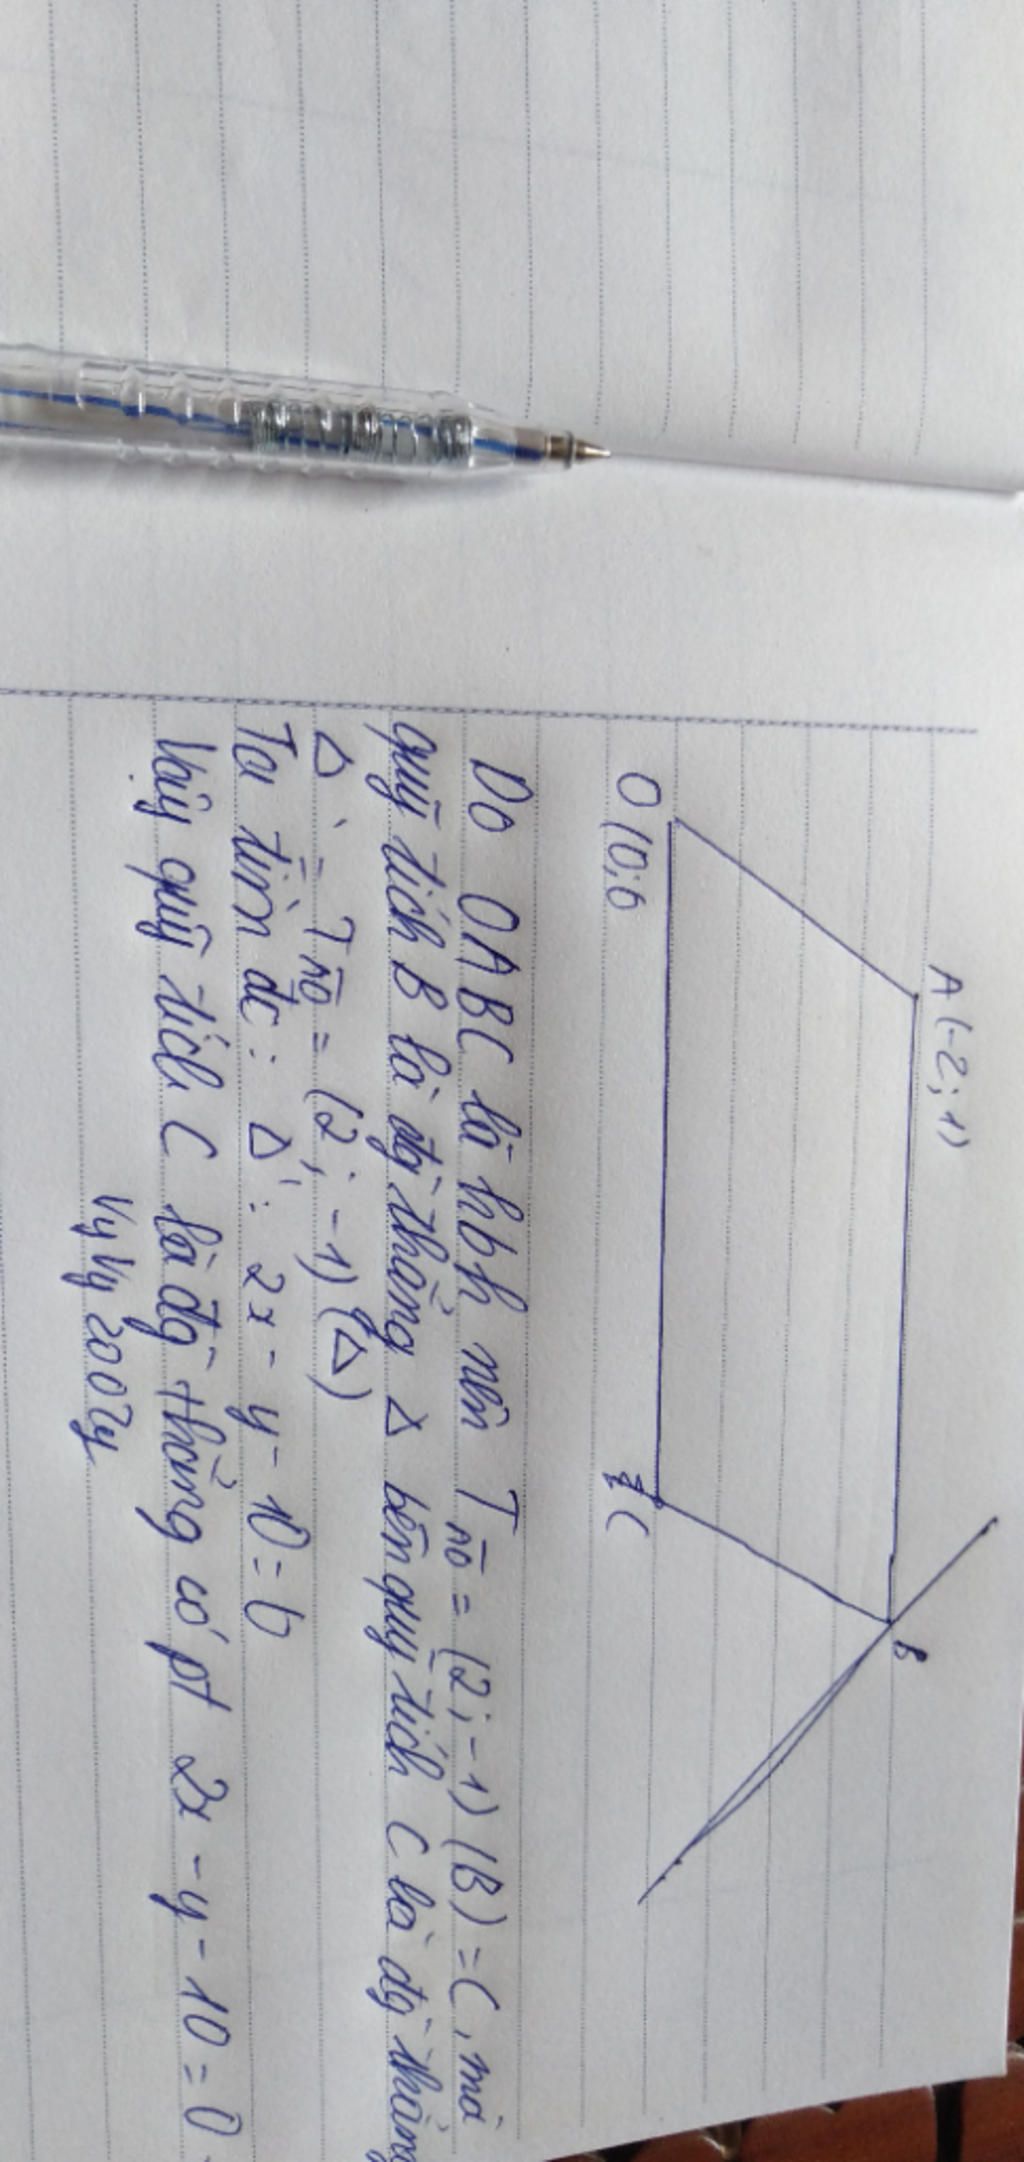 A(-2; 1)
B
O (0; 0
C
Do OABC là hbh nên T_AO = (2; -1) (B) = C, mà
quỹ tích B là đg thẳng Δ nên quỹ tích C là đg thẳng
Δ' = T_AO = (2; -1) (Δ)
Ta tìm đc: Δ': 2x - y - 10 = 0
Vậy quỹ tích C là đg thẳng có pt 2x - y - 10 = 0